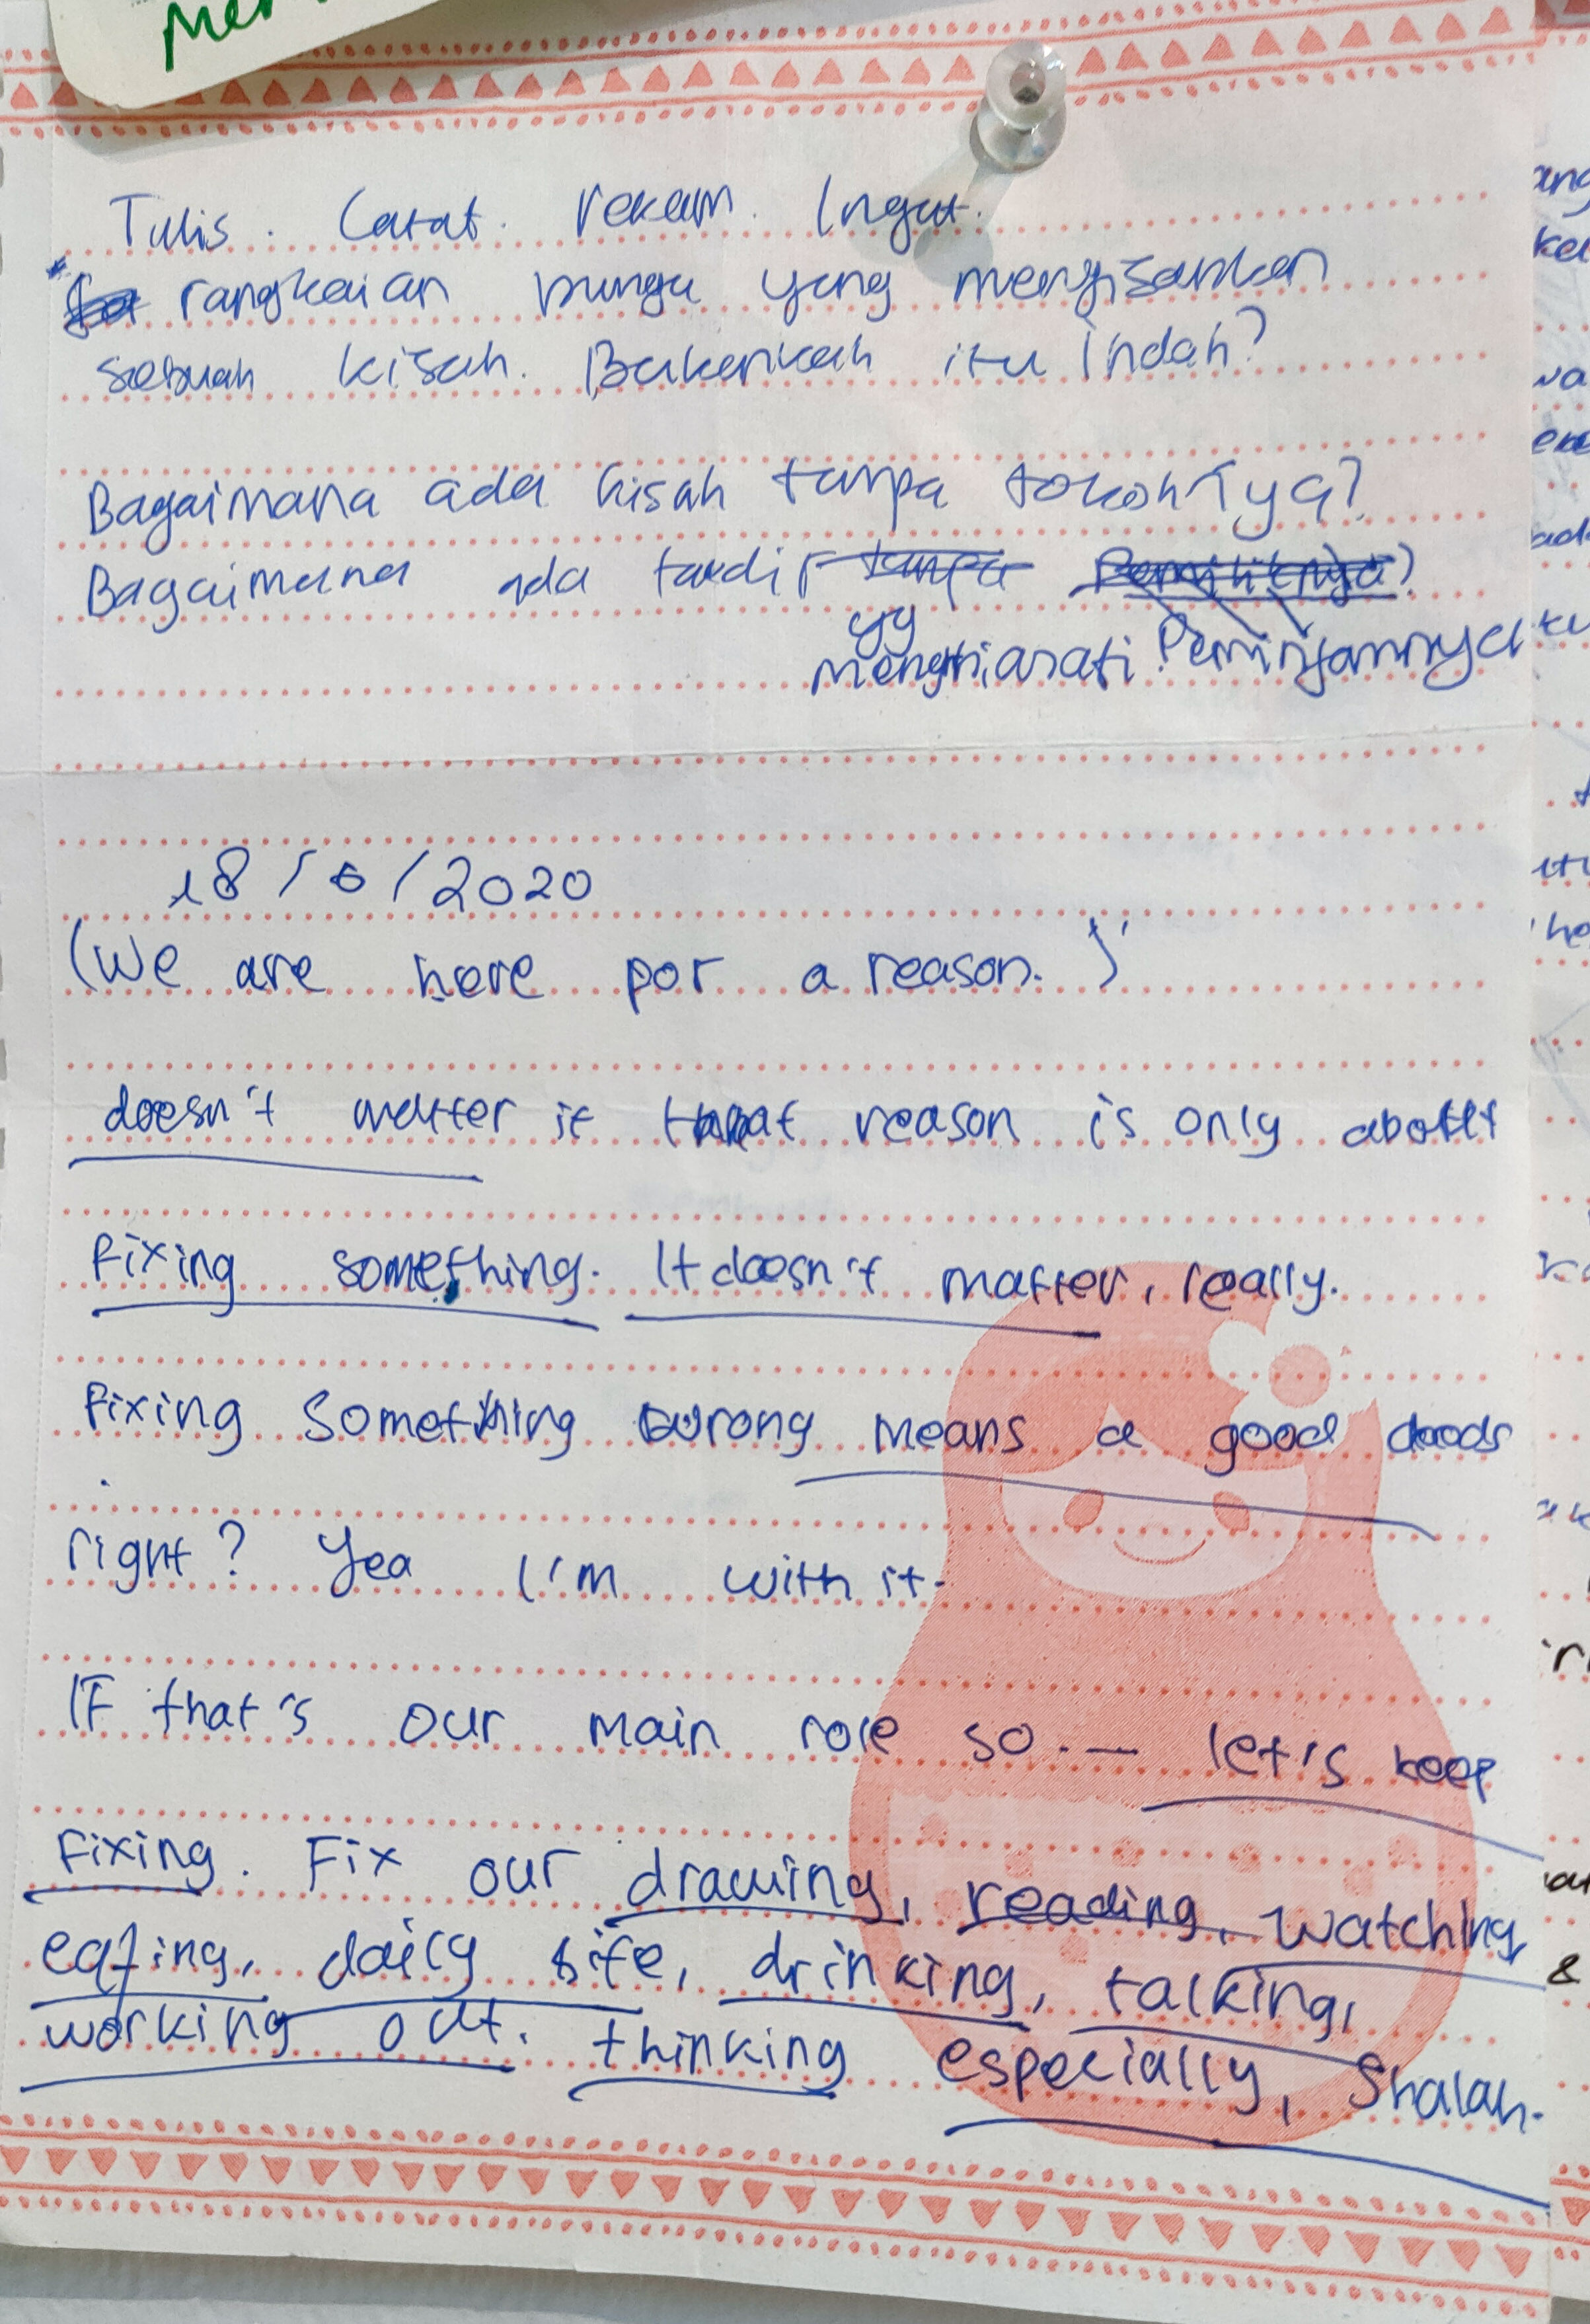 Mer
Tulis. Catat. rekam. Ingat.
rangkaian bunga yang mengisahkan
sebuah kisah. Bukankah itu indah?
Bagaimana ada kisah tanpa tokohnya?
Bagaimana ada takdir tanpa Pemiliknya?
yg
mengkhianati Peminjamnya
18/6/2020
(We are here for a reason.)
doesn't matter if that reason is only about
fixing something. It doesn't matter, really.
fixing something wrong means a good deeds
right? Yea I'm with it.
IF that's our main role so.— let's keep
Fixing. Fix our drawing, reading, watching
eating, daily life, drinking, talking,
working out. thinking especially, Shalah.